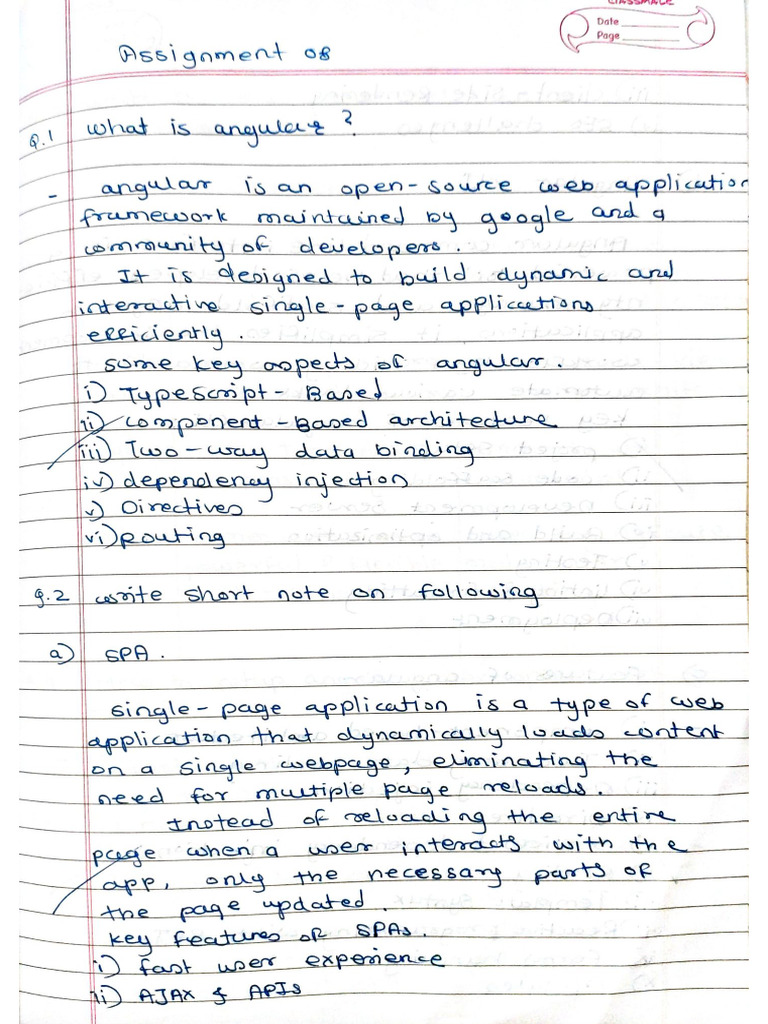 CLASSMATE
Date
Page
Assignment 08
Q.1 What is angular?
- angular is an open-source web application
framework maintained by google and a
community of developers.
It is designed to build dynamic and
interactive single-page applications
efficiently.
some key aspects of angular.
i) Typescript-Based
ii) component-Based architecture
iii) Two-way data binding
iv) dependency injection
v) Directives
vi) Routing
Q.2 write short note on following
a) SPA.
single-page application is a type of web
application that dynamically loads content
on a single webpage, eliminating the
need for multiple page reloads.
Instead of reloading the entire
page when a user interacts with the
app, only the necessary parts of
the page updated.
key features of SPAs.
i) fast user experience
ii) AJAX & APIs